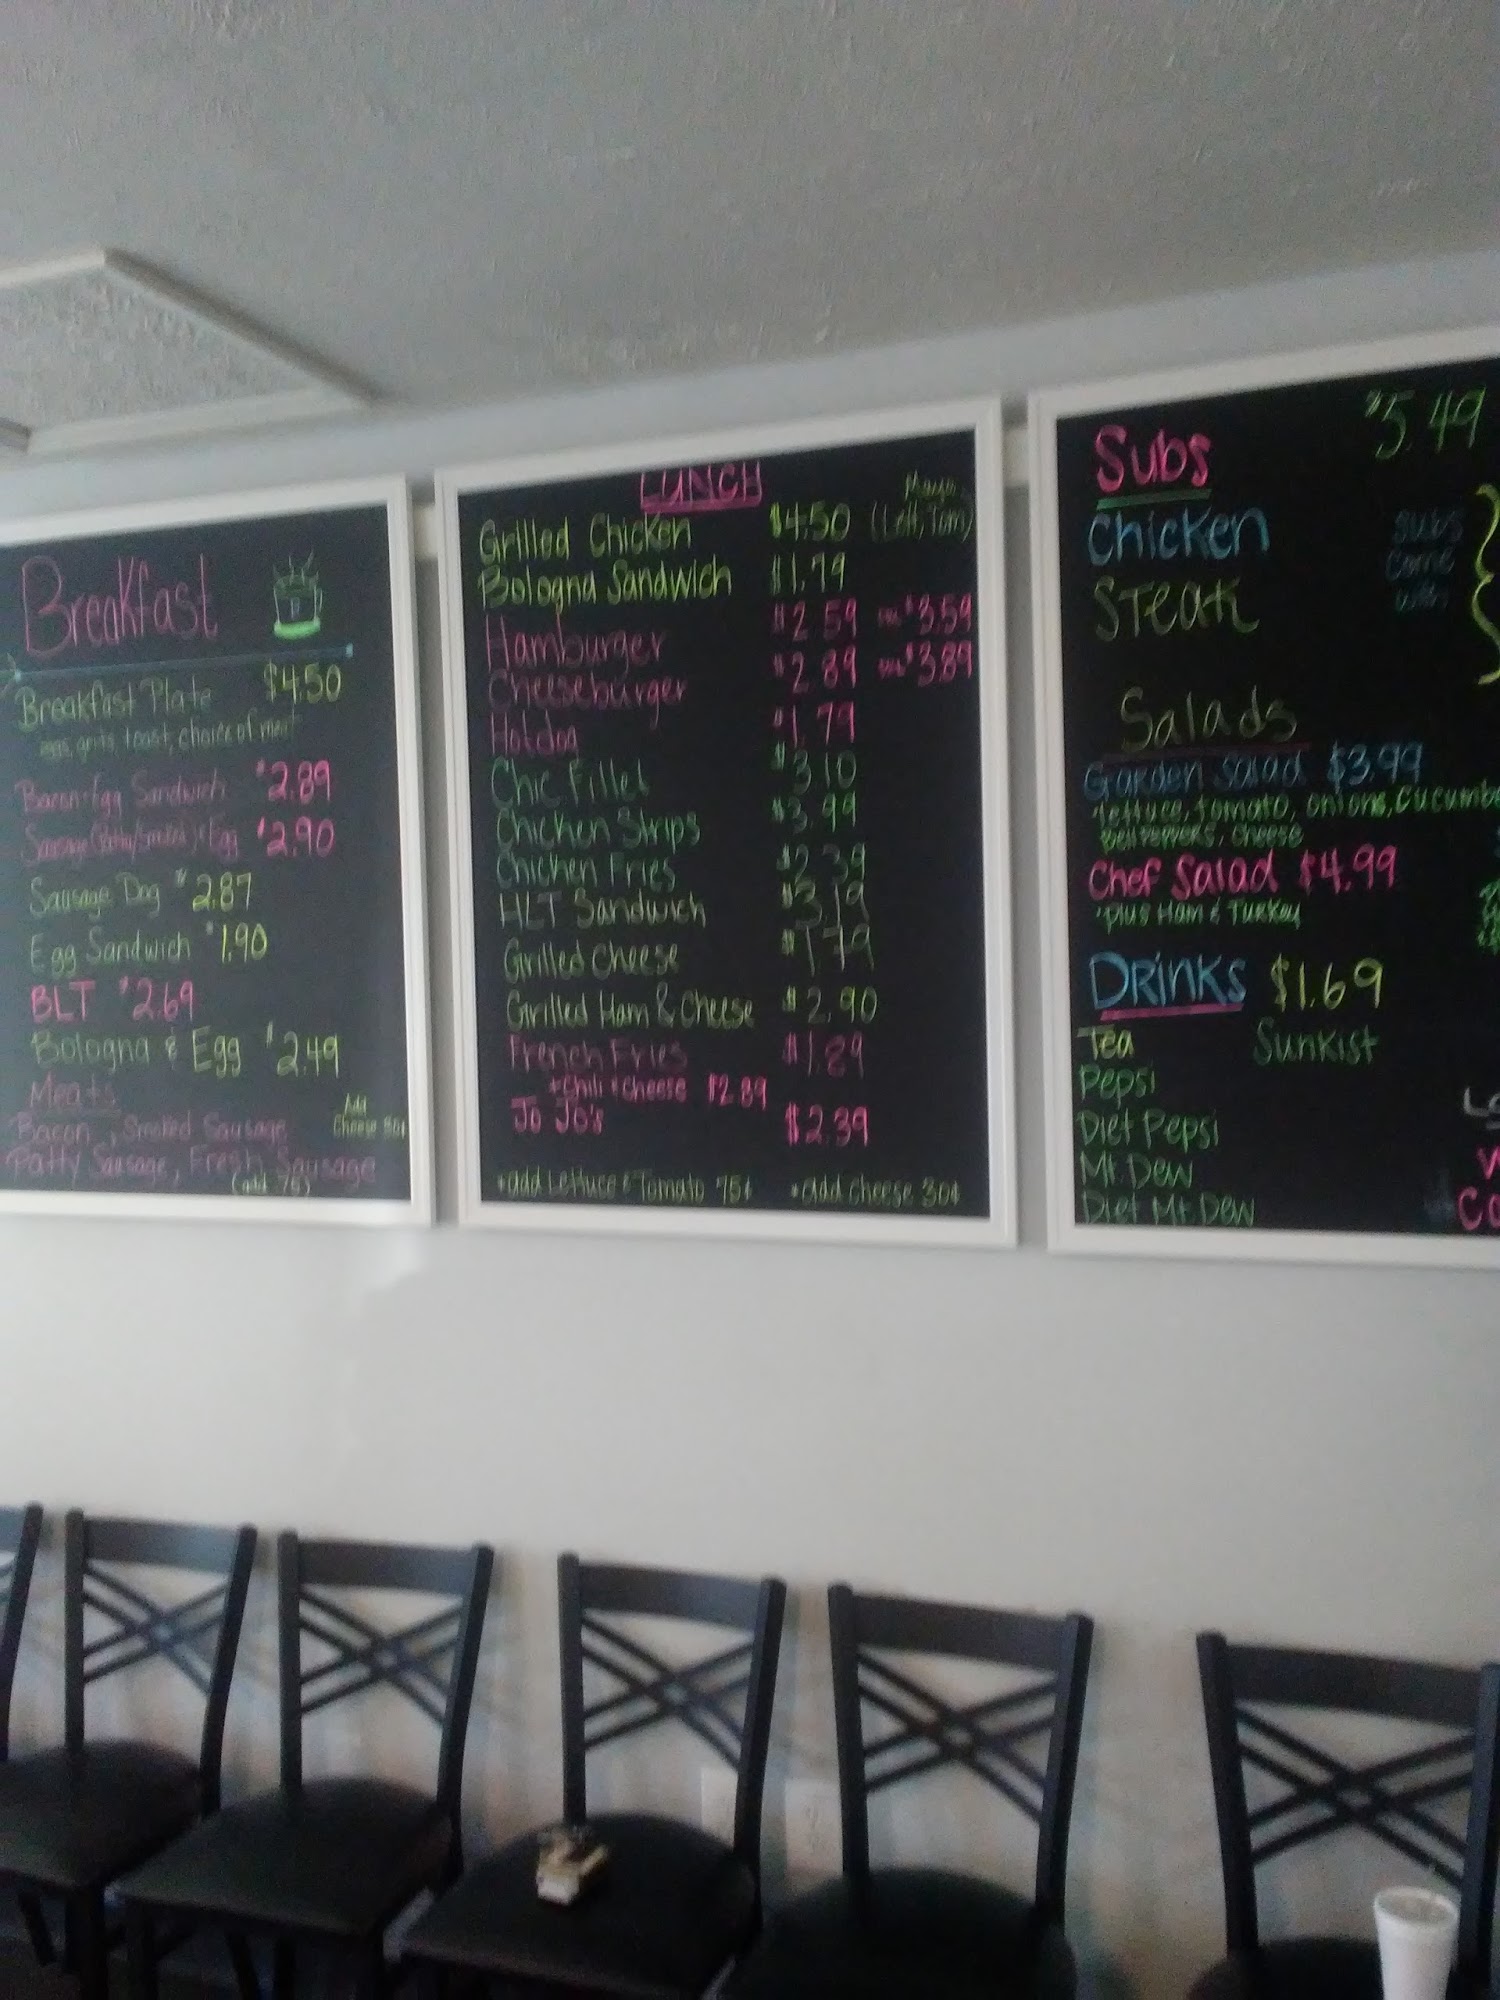 Breakfast
Breakfast Plate $4.50
eggs, grits, toast, choice of meat
Bacon + Egg Sandwich $2.89
Sausage (Patty/Smoked) + Egg $2.90
Sausage Dog $2.87
Egg Sandwich $1.90
BLT $2.69
Bologna & Egg $2.49
Meats
Add
Cheese 30¢
Bacon, Smoked Sausage
Patty Sausage, Fresh Sausage
(add .75)
LUNCH
Mayo
Grilled Chicken $4.50 (Lett, Tom)
Bologna Sandwich $1.79
Hamburger $2.59 $3.59
Cheeseburger $2.89 $3.89
Hotdog $1.79
Chic Fillet $3.10
Chicken Strips $3.99
Chicken Fries $2.39
HLT Sandwich $3.19
Grilled Cheese $1.79
Grilled Ham & Cheese $2.90
French Fries $1.89
+Chili + Cheese $2.89
Jo Jo's $2.39
*add Lettuce & Tomato 75¢ *add cheese 30¢
Subs $5.49
Chicken
Steak
Subs
Come
with
Salads
Garden Salad $3.99
lettuce, tomato, onions, cucumbe
Bell Peppers, cheese
Chef Salad $4.99
*plus Ham & Turkey
Drinks $1.69
Tea Sunkist
Pepsi
Diet Pepsi
Mt. Dew
Diet Mt. Dew